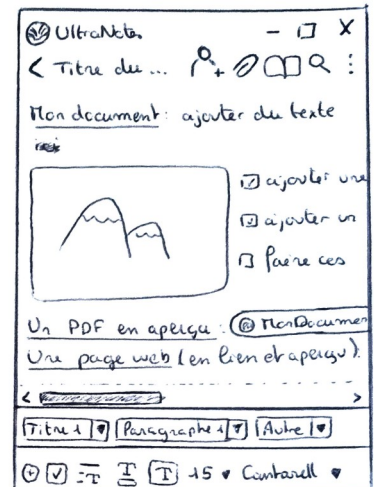 UltraNotes
Titre du ...
Mon document : ajouter du texte
ajouter une
ajouter un
Faire ces
Un PDF en aperçu : MonDocumen
Une page web (en lien et aperçu).
Titre 1 Paragraphe 1 Autre
T T T 15 Cantarell